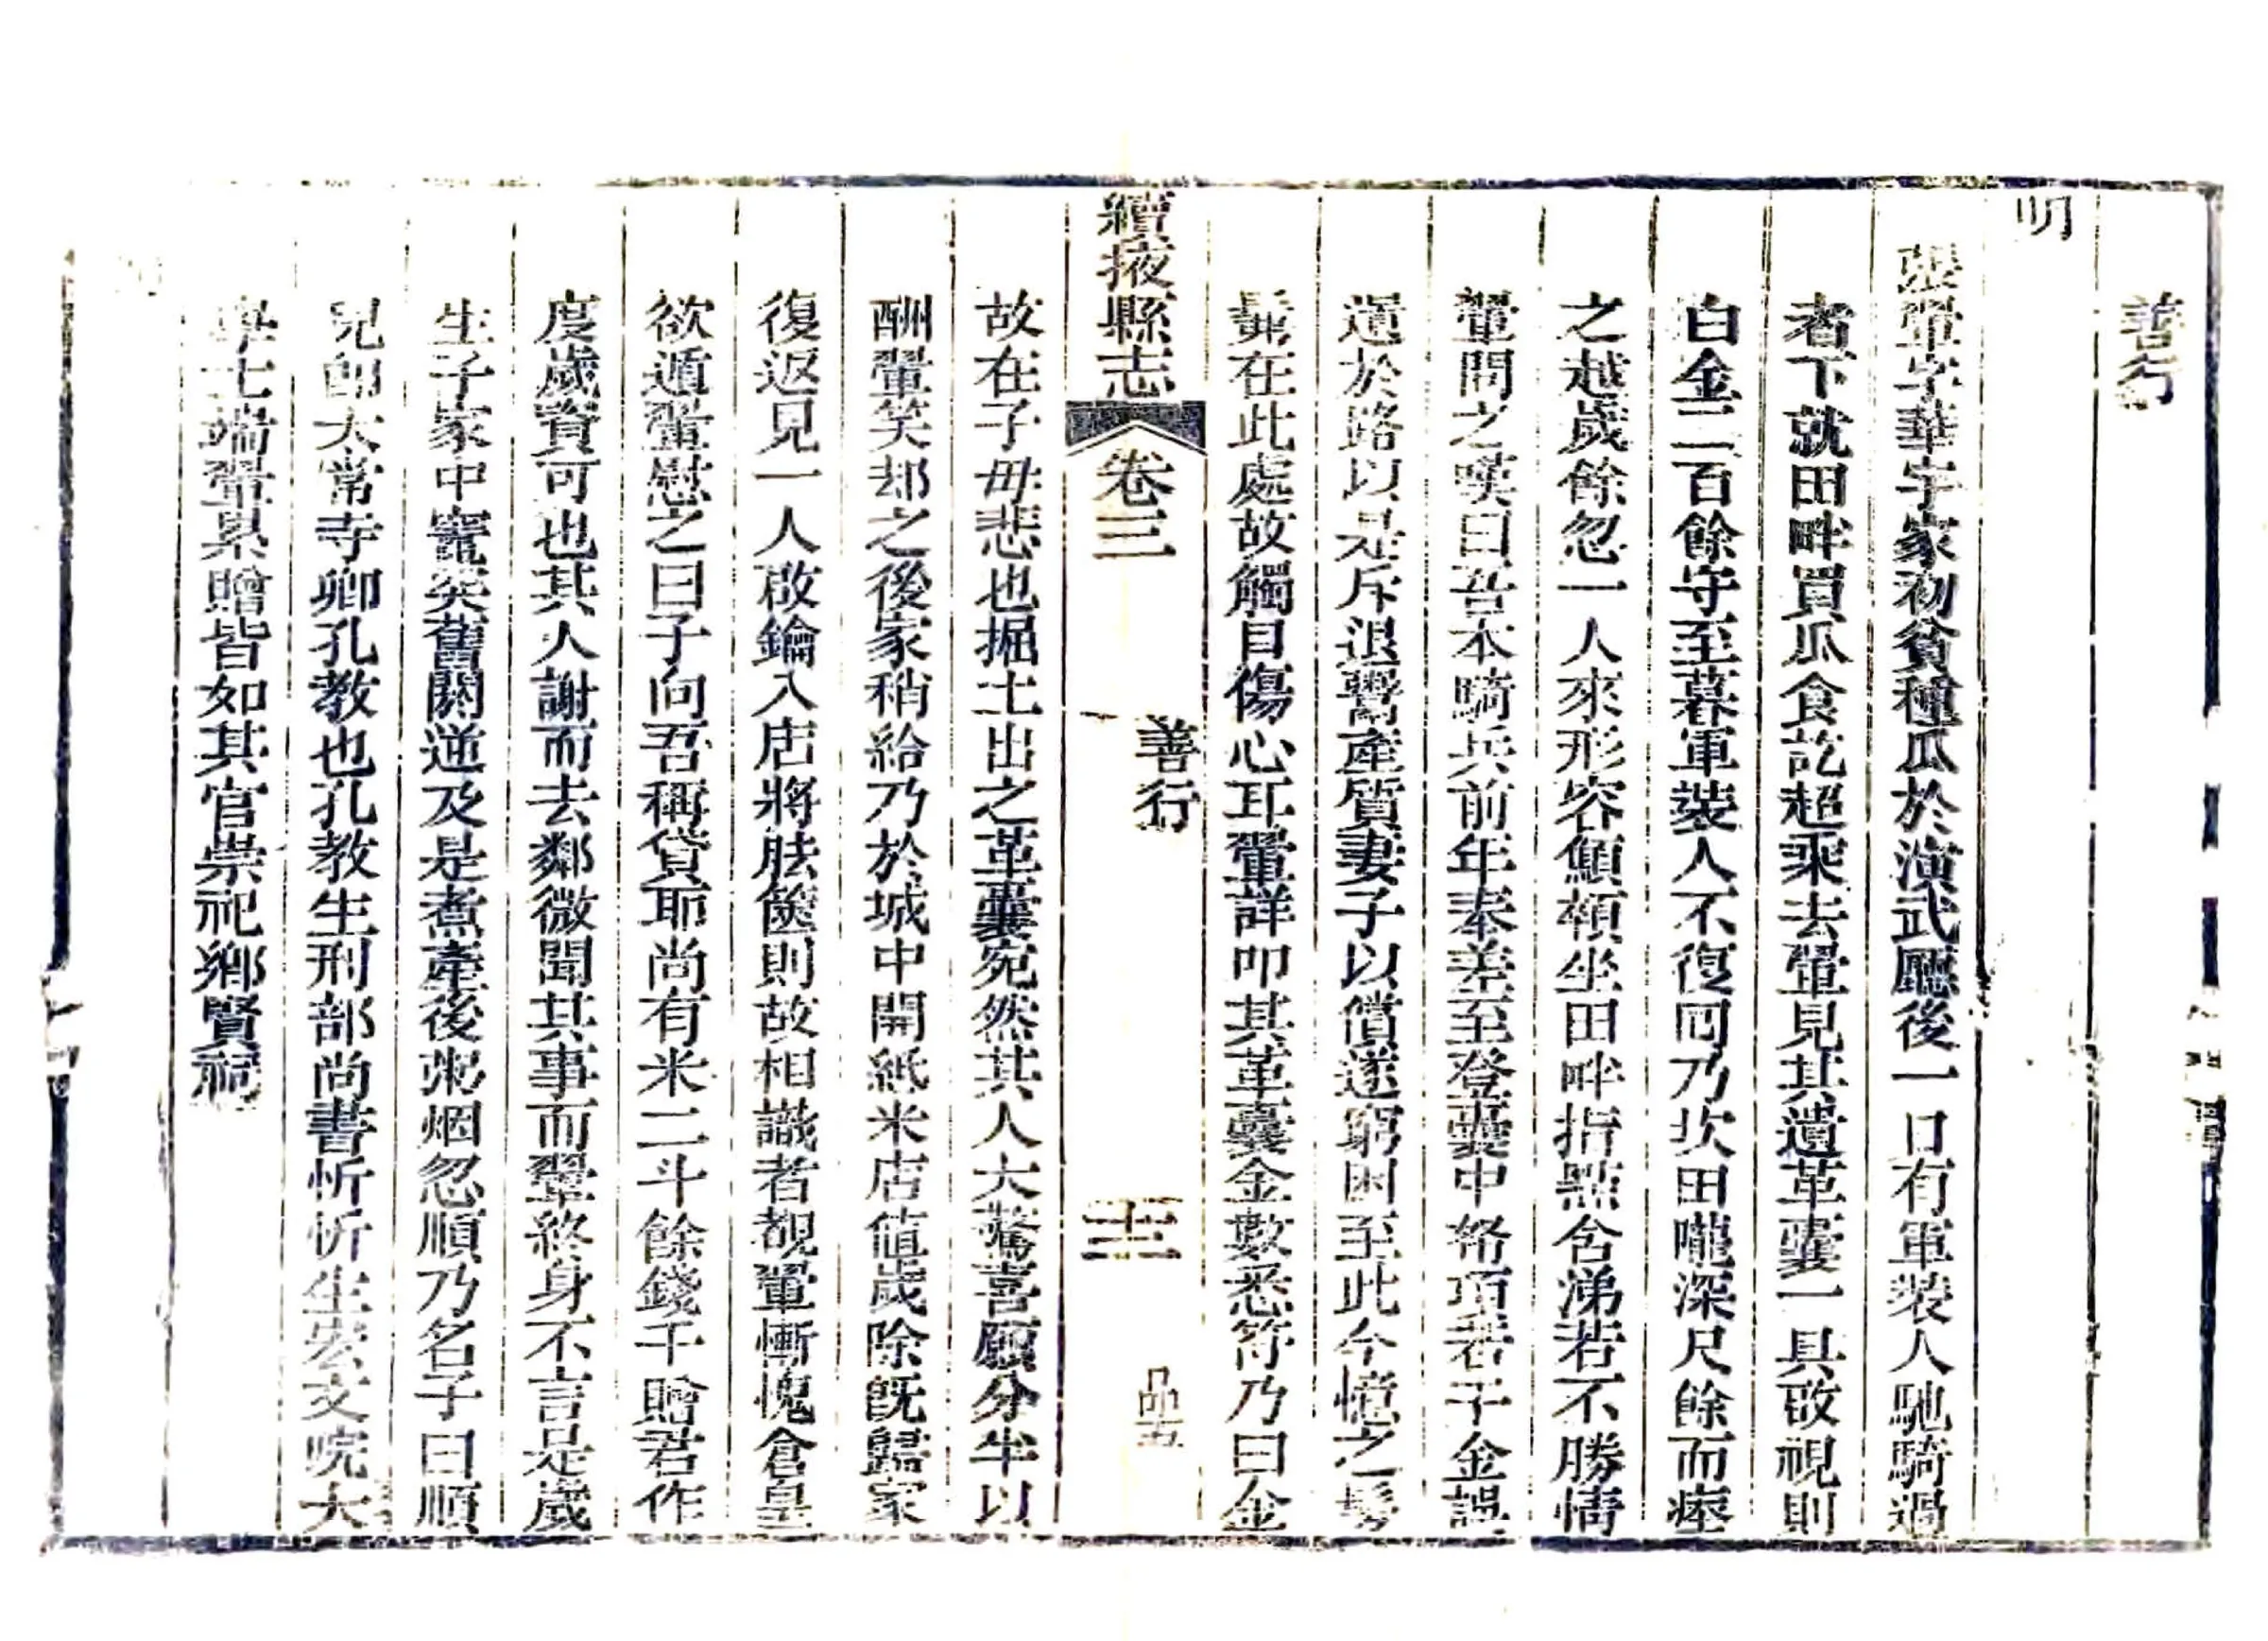 善行
明
張翬字華宇家初貧種瓜於演武廳後一日有軍裝人馳騎過
者下就田畔買瓜食訖超乘去翬見其遺革囊一具啟視則
白金二百餘守至暮軍裝人不復回乃坎田隴深尺餘而瘞
之越歲餘忽一人來形容顦顇坐田畔指點含涕若不勝情
翬問之嘆曰吾本騎兵前年奉差至登囊中帑項若干金誤
遺於路以是斥退鬻產質妻子以償遂窮困至此今憶之髣
髴在此處故觸目傷心耳翬詳叩其革囊金數悉符乃曰金
續掖縣志
卷三
善行
三
故在子毋悲也掘土出之革囊宛然其人大驚喜願分半以
酬翬笑却之後家稍給乃於城中開紙米店值歲除旣歸家
復返見一人啟鑰入店將胠篋則故相識者覩翬慚愧倉皇
欲遁翬慰之曰子向吾稱貸耶尚有米二斗餘錢千贈君作
度歲資可也其人謝而去鄰微聞其事而翬終身不言是歲
生子家中竈突舊閼逆及是煮產後粥烟忽順乃名子曰順
兒卽太常寺卿孔教也孔教生刑部尚書忻忻生宏文院大
學士端翬累贈皆如其官崇祀鄉賢祠